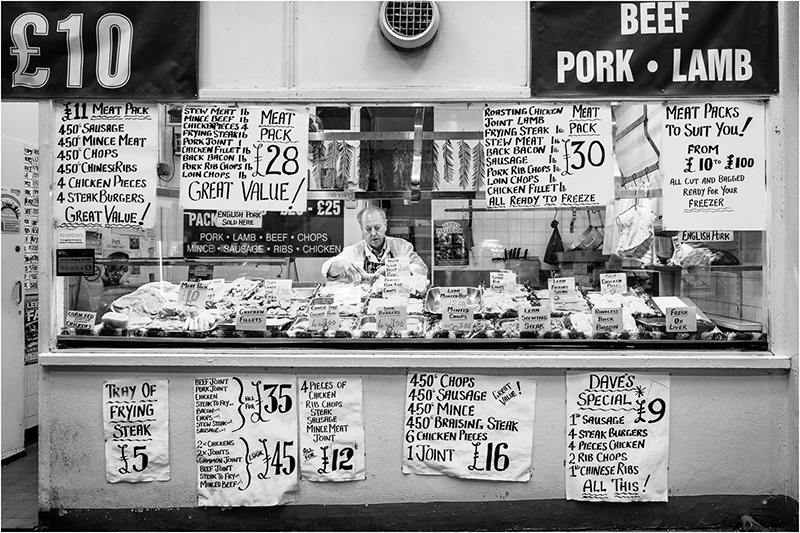 £10
BEEF
PORK • LAMB
£11 MEAT PACK
450G SAUSAGE
450G MINCE MEAT
450G CHOPS
450G CHINESE RIBS
4 CHICKEN PIECES
4 STEAK BURGERS
GREAT VALUE!
STEW MEAT 1LB
MINCE BEEF 1LB
CHICKEN PIECES 4
FRYING STEAK 1LB
PORK JOINT 1
CHICKEN FILLET 1LB
BACK BACON 1LB
PORK RIB CHOPS 1LB
LOIN CHOPS 1LB
MEAT
PACK
£28
GREAT VALUE!
ROASTING CHICKEN
JOINT LAMB
FRYING STEAK 1LB
STEW MEAT 1LB
BACK BACON 1LB
SAUSAGE 1LB
PORK RIB CHOPS 1LB
LOIN CHOPS 1LB
CHICKEN FILLET 1LB
MEAT
PACK
£30
ALL READY TO FREEZE
MEAT PACKS
TO SUIT YOU!
FROM
£10 TO £100
ALL CUT AND BAGGED
READY FOR YOUR
FREEZER
ENGLISH PORK
SOLD HERE
PACK
£20 - £25
PORK • LAMB • BEEF • CHOPS
MINCE • SAUSAGE • RIBS • CHICKEN
ENGLISH PORK
CORN FED
CHICKEN
FILLETS
MINTED
CHOPS
LEAN STEWING
STEAK
RINDLESS
BACK BACON
FRESH
OX LIVER
TRAY OF
FRYING
STEAK
£5
BEEF JOINT
PORK JOINT
CHICKEN
STEAK TO FRY
BACON
CHOPS
STEW STEAK
SAUSAGE
ALL FOR
£35
2 X CHICKENS
2 X JOINTS
GAMMON JOINT
BEEF JOINT
STEAK TO FRY
MINCED BEEF
LOOK
£45
4 PIECES OF
CHICKEN
RIB CHOPS
STEAK
SAUSAGE
MINCE MEAT
JOINT
ALL FOR
£12
450G CHOPS
450G SAUSAGE
450G MINCE
450G BRAISING STEAK
6 CHICKEN PIECES
1 JOINT
GREAT
VALUE!
£16
DAVE'S
SPECIAL
£9
1LB SAUSAGE
4 STEAK BURGERS
4 PIECES CHICKEN
2 RIB CHOPS
1LB CHINESE RIBS
ALL THIS!